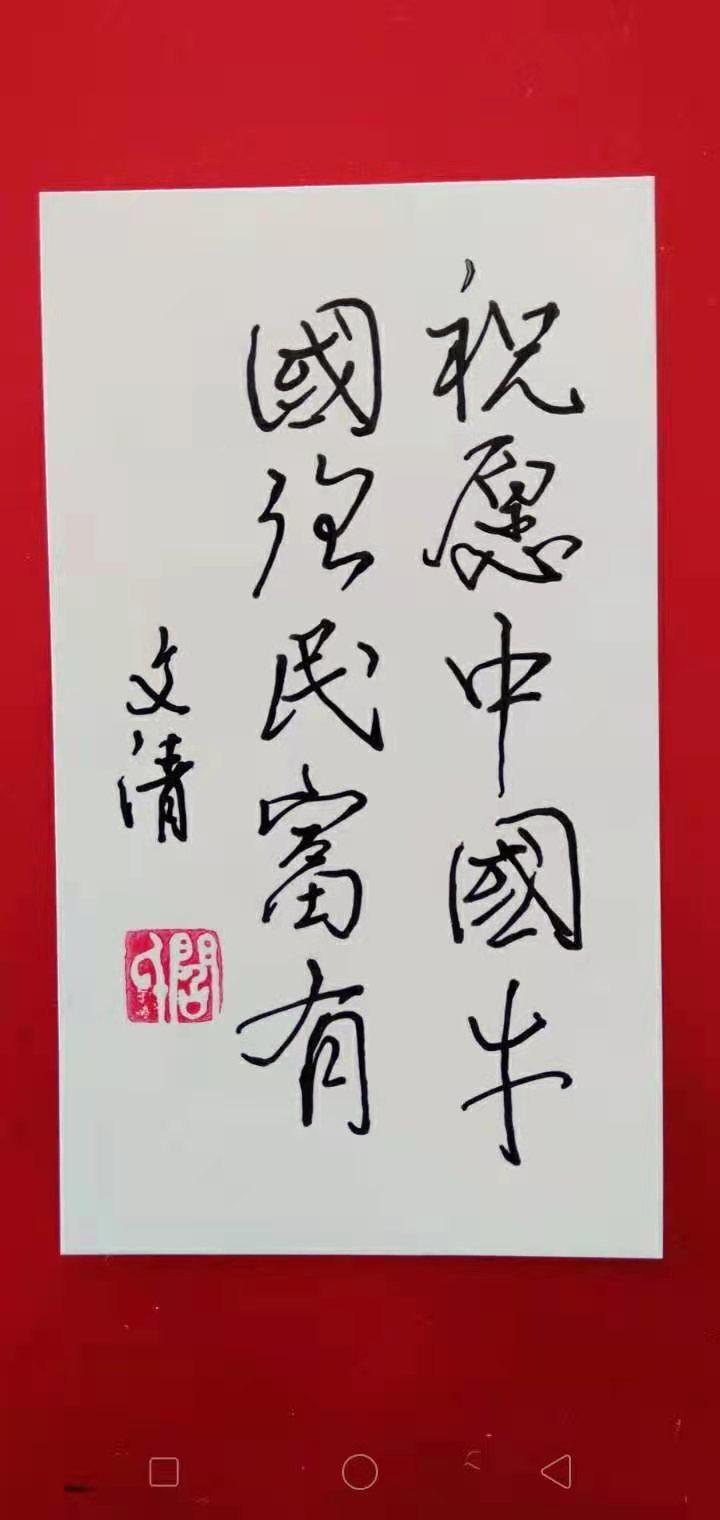 祝愿中國牛
國强民富有
文清